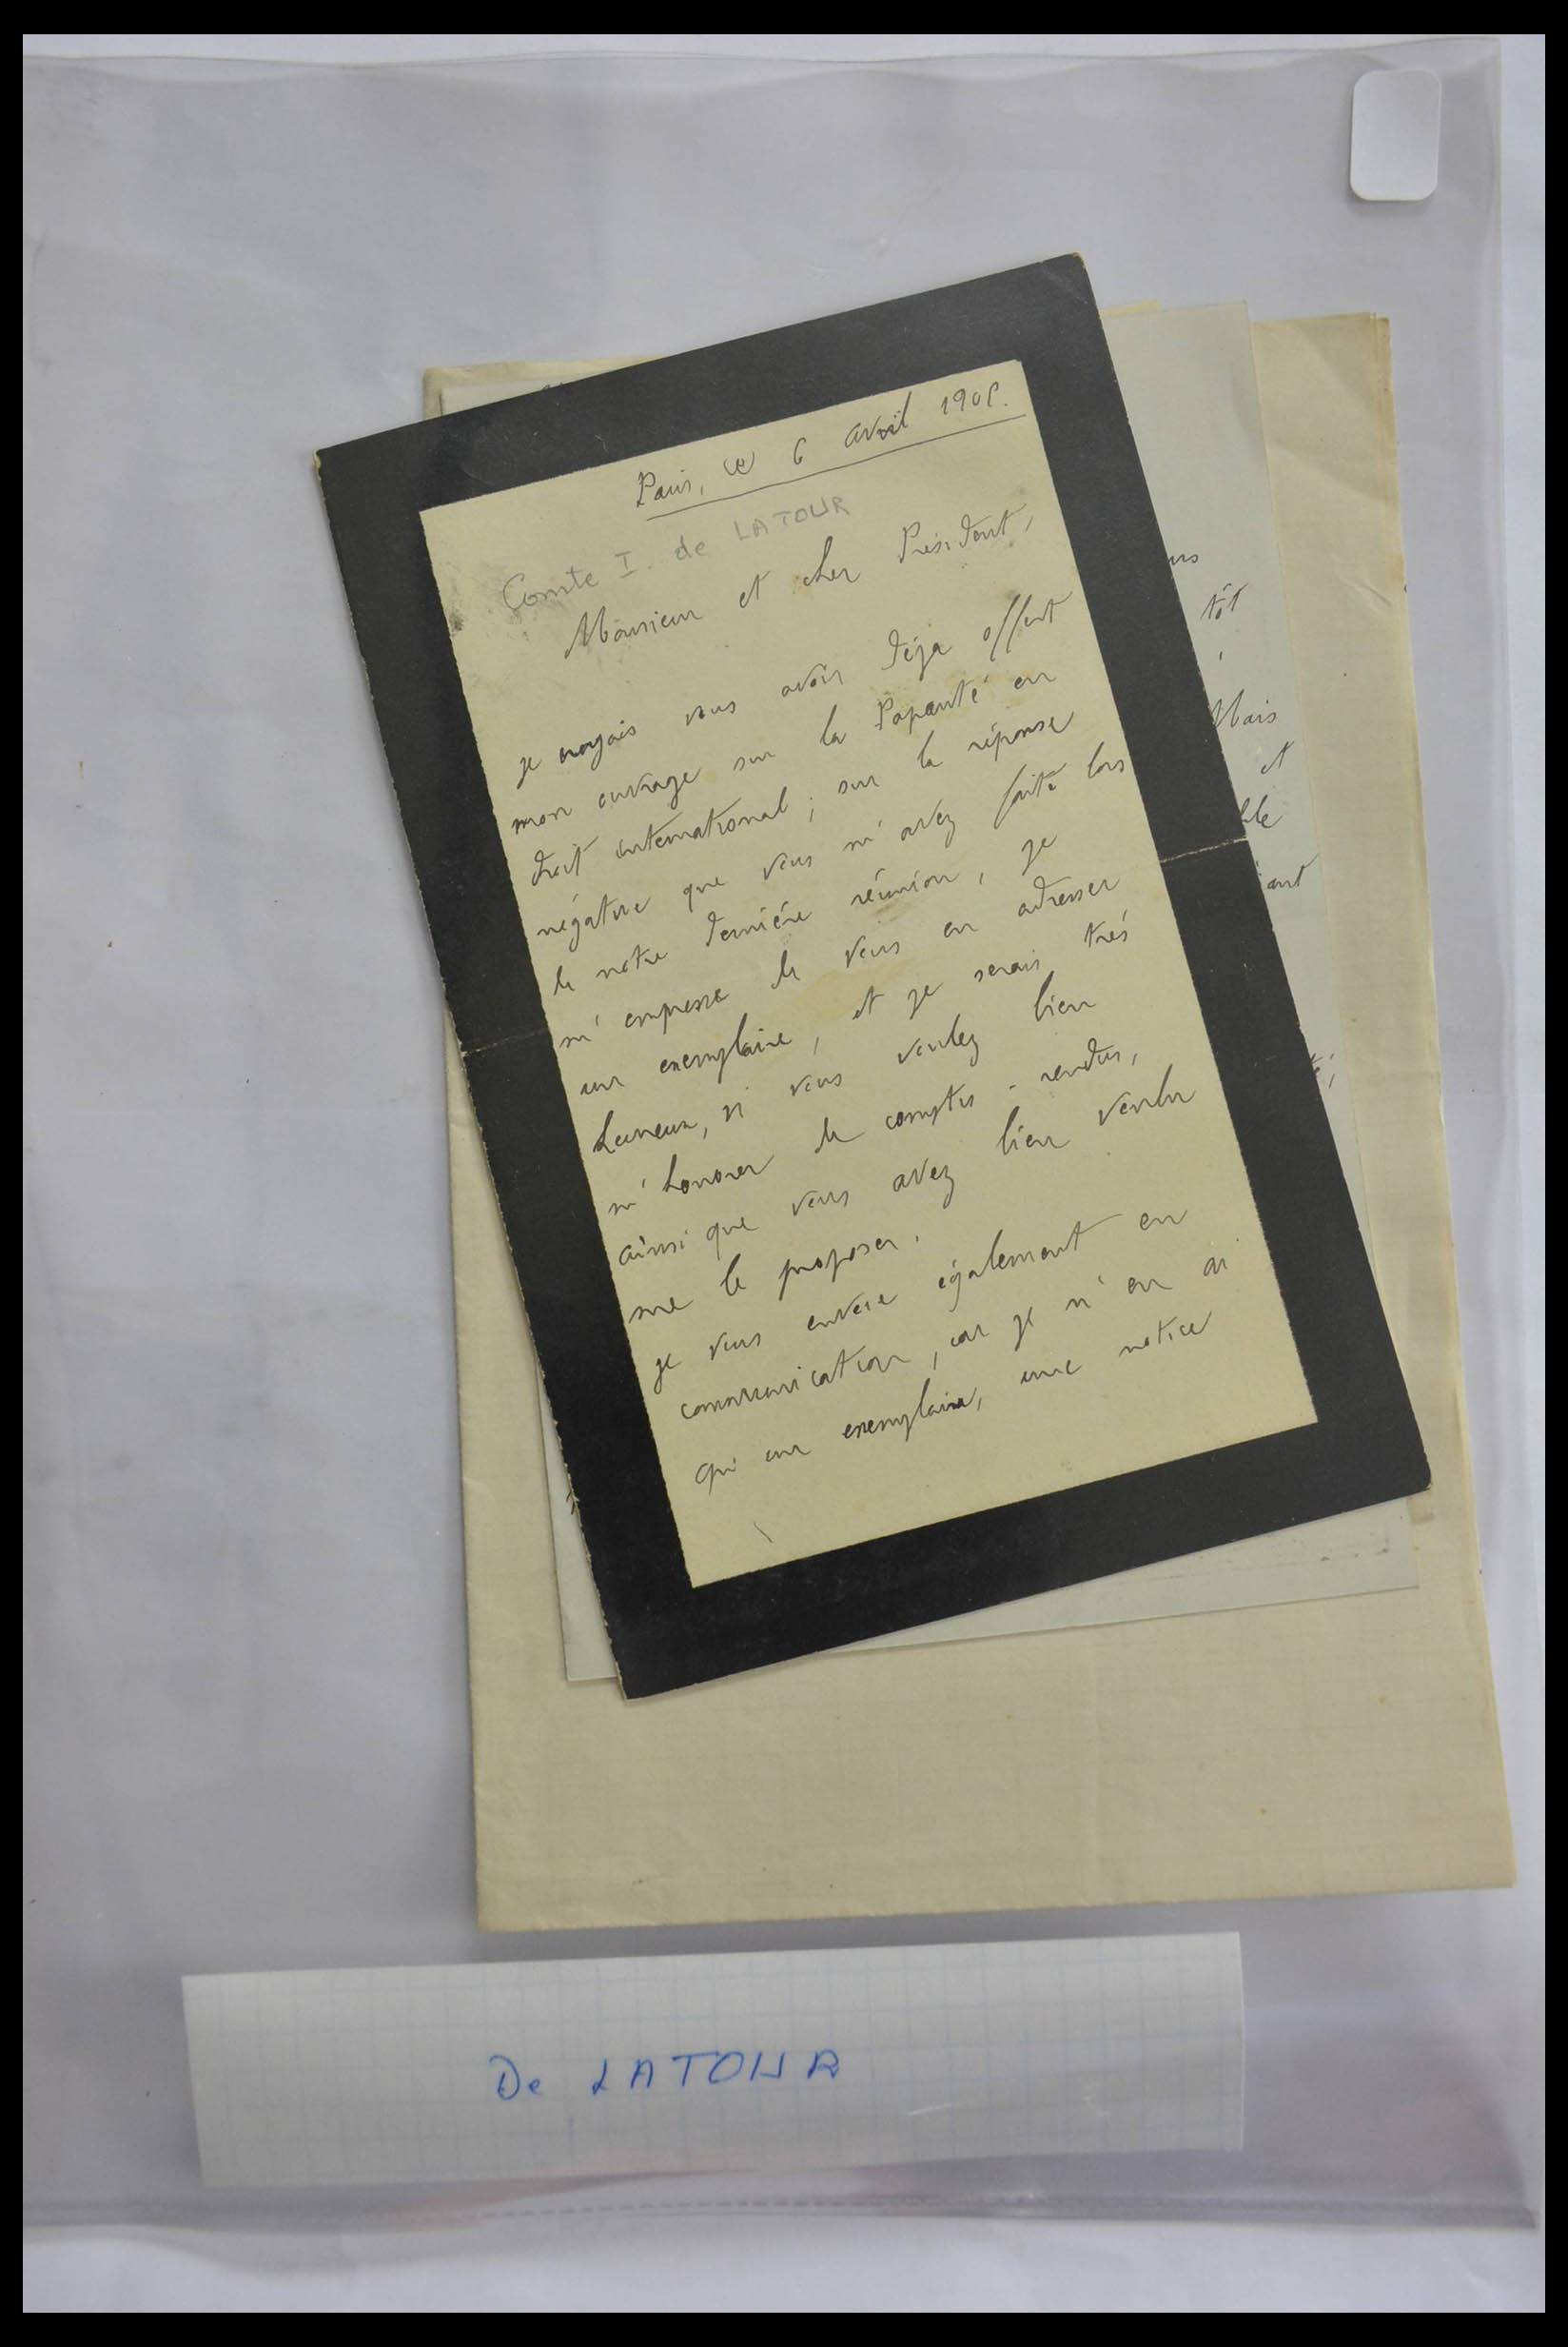 Paris, ce 6 avril 190
Comte I. de LATOUR
Monsieur et cher Président,
je croyais vous avoir déja offert
mon ouvrage sur la Papauté en
droit international ; sur la réponse
négative que vous m'avez faite lors
de notre dernière réunion, je
m'empresse de vous en adresser
un exemplaire, et je serais très
heureux, si vous voulez bien
m'honorer de comptes-rendus,
ainsi que vous avez bien voulu
me le proposer.
je vous envoie également en
communication, car je n'en ai
qu'un exemplaire, une notice
tôt
Mais
et
De LATOUR